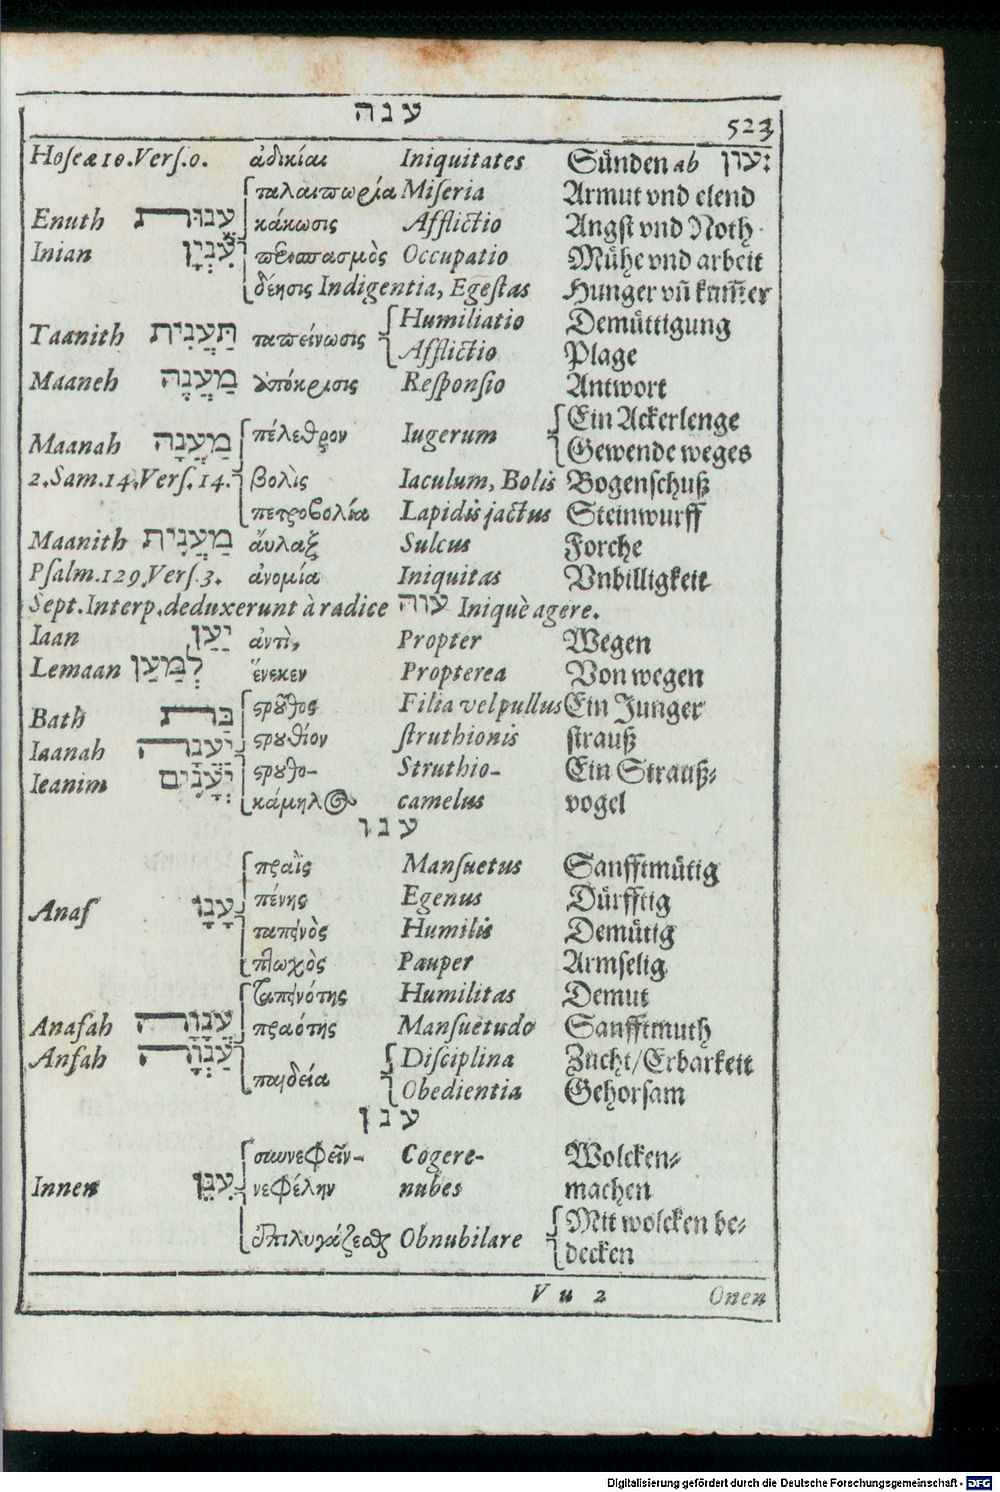 ענה
523
Hoſeæ 10. Verſ. 0. ἀδικίαι Iniquitates Sünden ab עון:
παλαιπωρία Miſeria Armut vnd elend
Enuth עֱנוּת κάκωσις Afflictio Angſt vnd Noth
Inian עִנְיָן πειρασμὸς Occupatio Mühe vnd arbeit
δέησις Indigentia, Egeſtas Hunger vn̄ kum̄er
Humiliatio Demüttigung
Taanith תַּעֲנִית ταπείνωσις
Afflictio Plage
Maaneh מַעֲנֶה ἀπόκρισις Reſponſio Antwort
Ein Ackerlenge
πέλεθρον Iugerum
Maanah מַעֲנָה Gewende weges
2. Sam. 14. Verſ. 14. βολὶς Iaculum, Bolis Bogenſchuß
πετροβολία Lapidis jactus Steinwurff
Maanith מַעֲנִית ἄυλαξ Sulcus Forche
Pſalm. 129. Verſ. 3. ἀνομία Iniquitas Vnbilligkeit
Sept. Interp. deduxerunt à radice עוה Iniquè agere.
Iaan יַעַן ἀντὶ, Propter Wegen
Lemaan לְמַעַן ἕνεκεν Propterea Von wegen
ςρȣ̃θος Filia vel pullus Ein Junger
Bath בַּת
ςρȣθίον ſtruthionis ſtrauß
Iaanah יַעֲנָה
ςρȣθο- Struthio- Ein Strauß-
Ieanim יְעֵנִים
κάμηλος camelus vogel
ענו
πραῢς Manſuetus Sanfftmütig
πένης Egenus Dürfftig
Anaſ עָנָו
ταπεινὸς Humilis Demütig
πτωχὸς Pauper Armſelig
ταπεινότης Humilitas Demut
Anafah עֲנָוָה πραότης Manſuetudo Sanfftmuth
Anfah עַנְוָה Diſciplina Zucht/Erbarkeit
παιδεία
Obedientia Gehorſam
ענן
συννεφεῖν- Cogere- Wolcken-
Innen עִנֵּן νεφέλην nubes machen
Mit wolcken be-
ἐπιλυγάζεσθαι Obnubilare
decken
V u 2 Onen
Digitalisierung gefördert durch die Deutsche Forschungsgemeinschaft - DFG